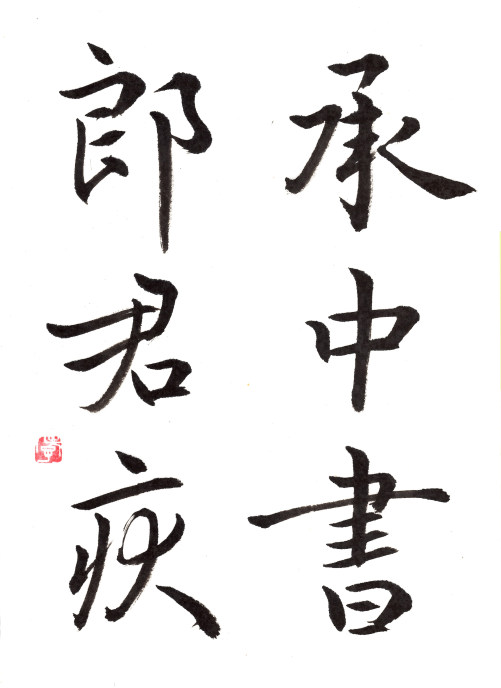 承中書
郎君疾